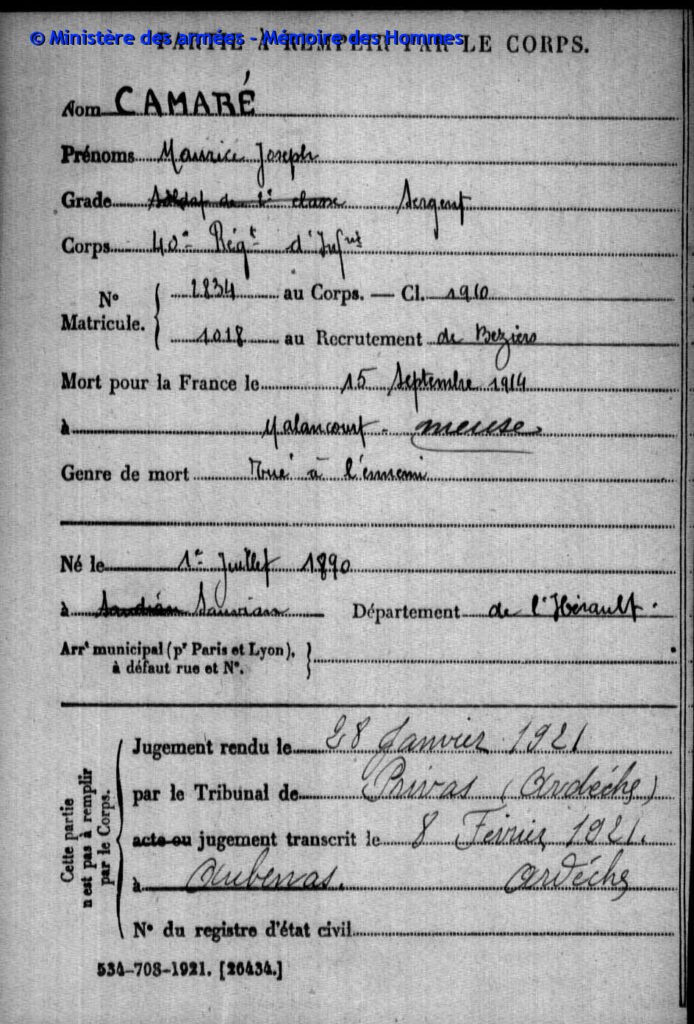 © Ministère des armées - Mémoire des Hommes
PARTIE À REMPLIR PAR LE CORPS.
Nom CAMARÉ
Prénoms Maurice Joseph
Grade Soldat de 2e classe Sergent
Corps 40e Régt d'Infrie
N° Matricule. { 2834 au Corps. — Cl. 1910
1018 au Recrutement de Beziers
Mort pour la France le 15 Septembre 1914
à Malancourt - meuse
Genre de mort Tué à l'ennemi
Né le 1er Juillet 1890
à Sauvian Département de l'Hérault.
Arrt municipal (pr Paris et Lyon),
à défaut rue et N°.
Cette partie
n'est pas à remplir
par le Corps.
Jugement rendu le 28 Janvier 1921
par le Tribunal de Privas (Ardèche)
acte ou jugement transcrit le 8 Février 1921.
à Aubenas. Ardèche
N° du registre d'état civil
534-708-1921. [26434.]